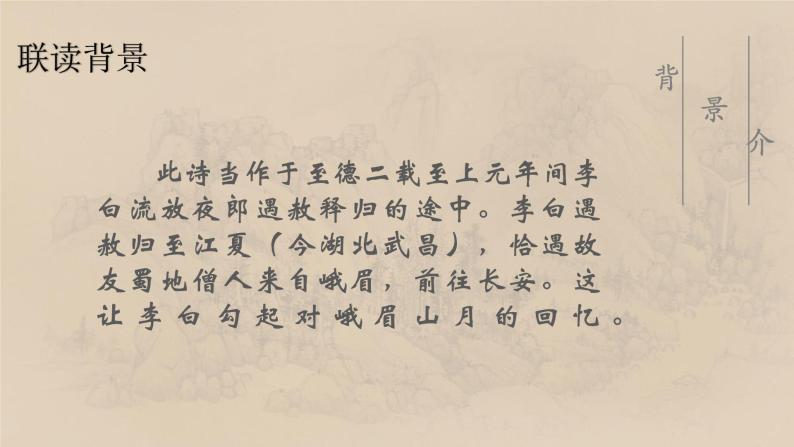 联读背景
背景介
此诗当作于至德二载至上元年间李
白流放夜郎遇赦释归的途中。李白遇
赦归至江夏（今湖北武昌），恰遇故
友蜀地僧人来自峨眉，前往长安。这
让李白勾起对峨眉山月的回忆。